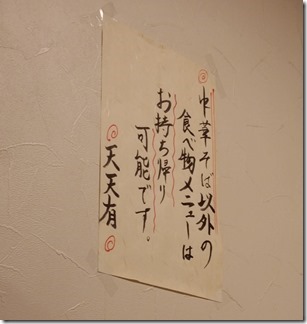 中華そば以外の
食べ物メニューは
お持ち帰り
可能です。
天天有